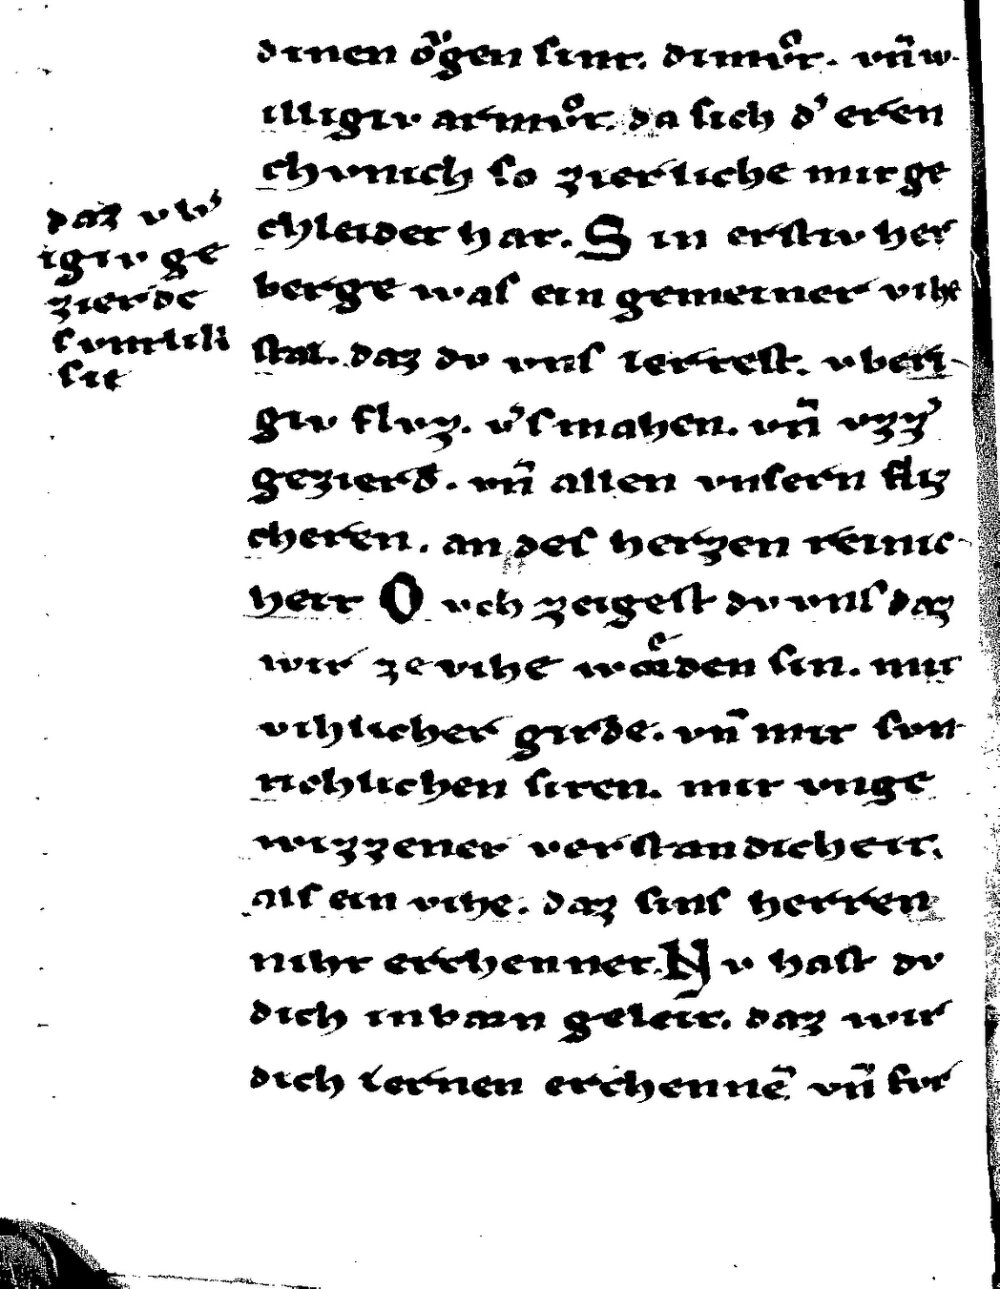 dinen oͮgen sint. dimvͦt. vn̄ w
illigiv armvͦt. da sich d' eren
chvnich so zierliche mit ge
chleidet hat. Sin erstiv her
berge was ein gemeiner vihe
stal. daz dv vns lertest. vberi
giv flvz. v'smahen. vn̄ vzz'
gezierd. vn̄ allen vnsern fliz
cheren. an des herzen reinic
heit Ovch zeigest dv vns daz
wir ze vihe worden sin. mit
vihlicher girde. vn̄ mit svn
tichlichen siten. mit vnge
wizzener verstandicheit.
als ein vihe. daz sins herren
niht erchennet. Nv hast dv
dich in barn geleit. daz wir
dich lernen erchennē vn̄ fvr
daz vw'
igiv ge
zierde
svntlih
sit